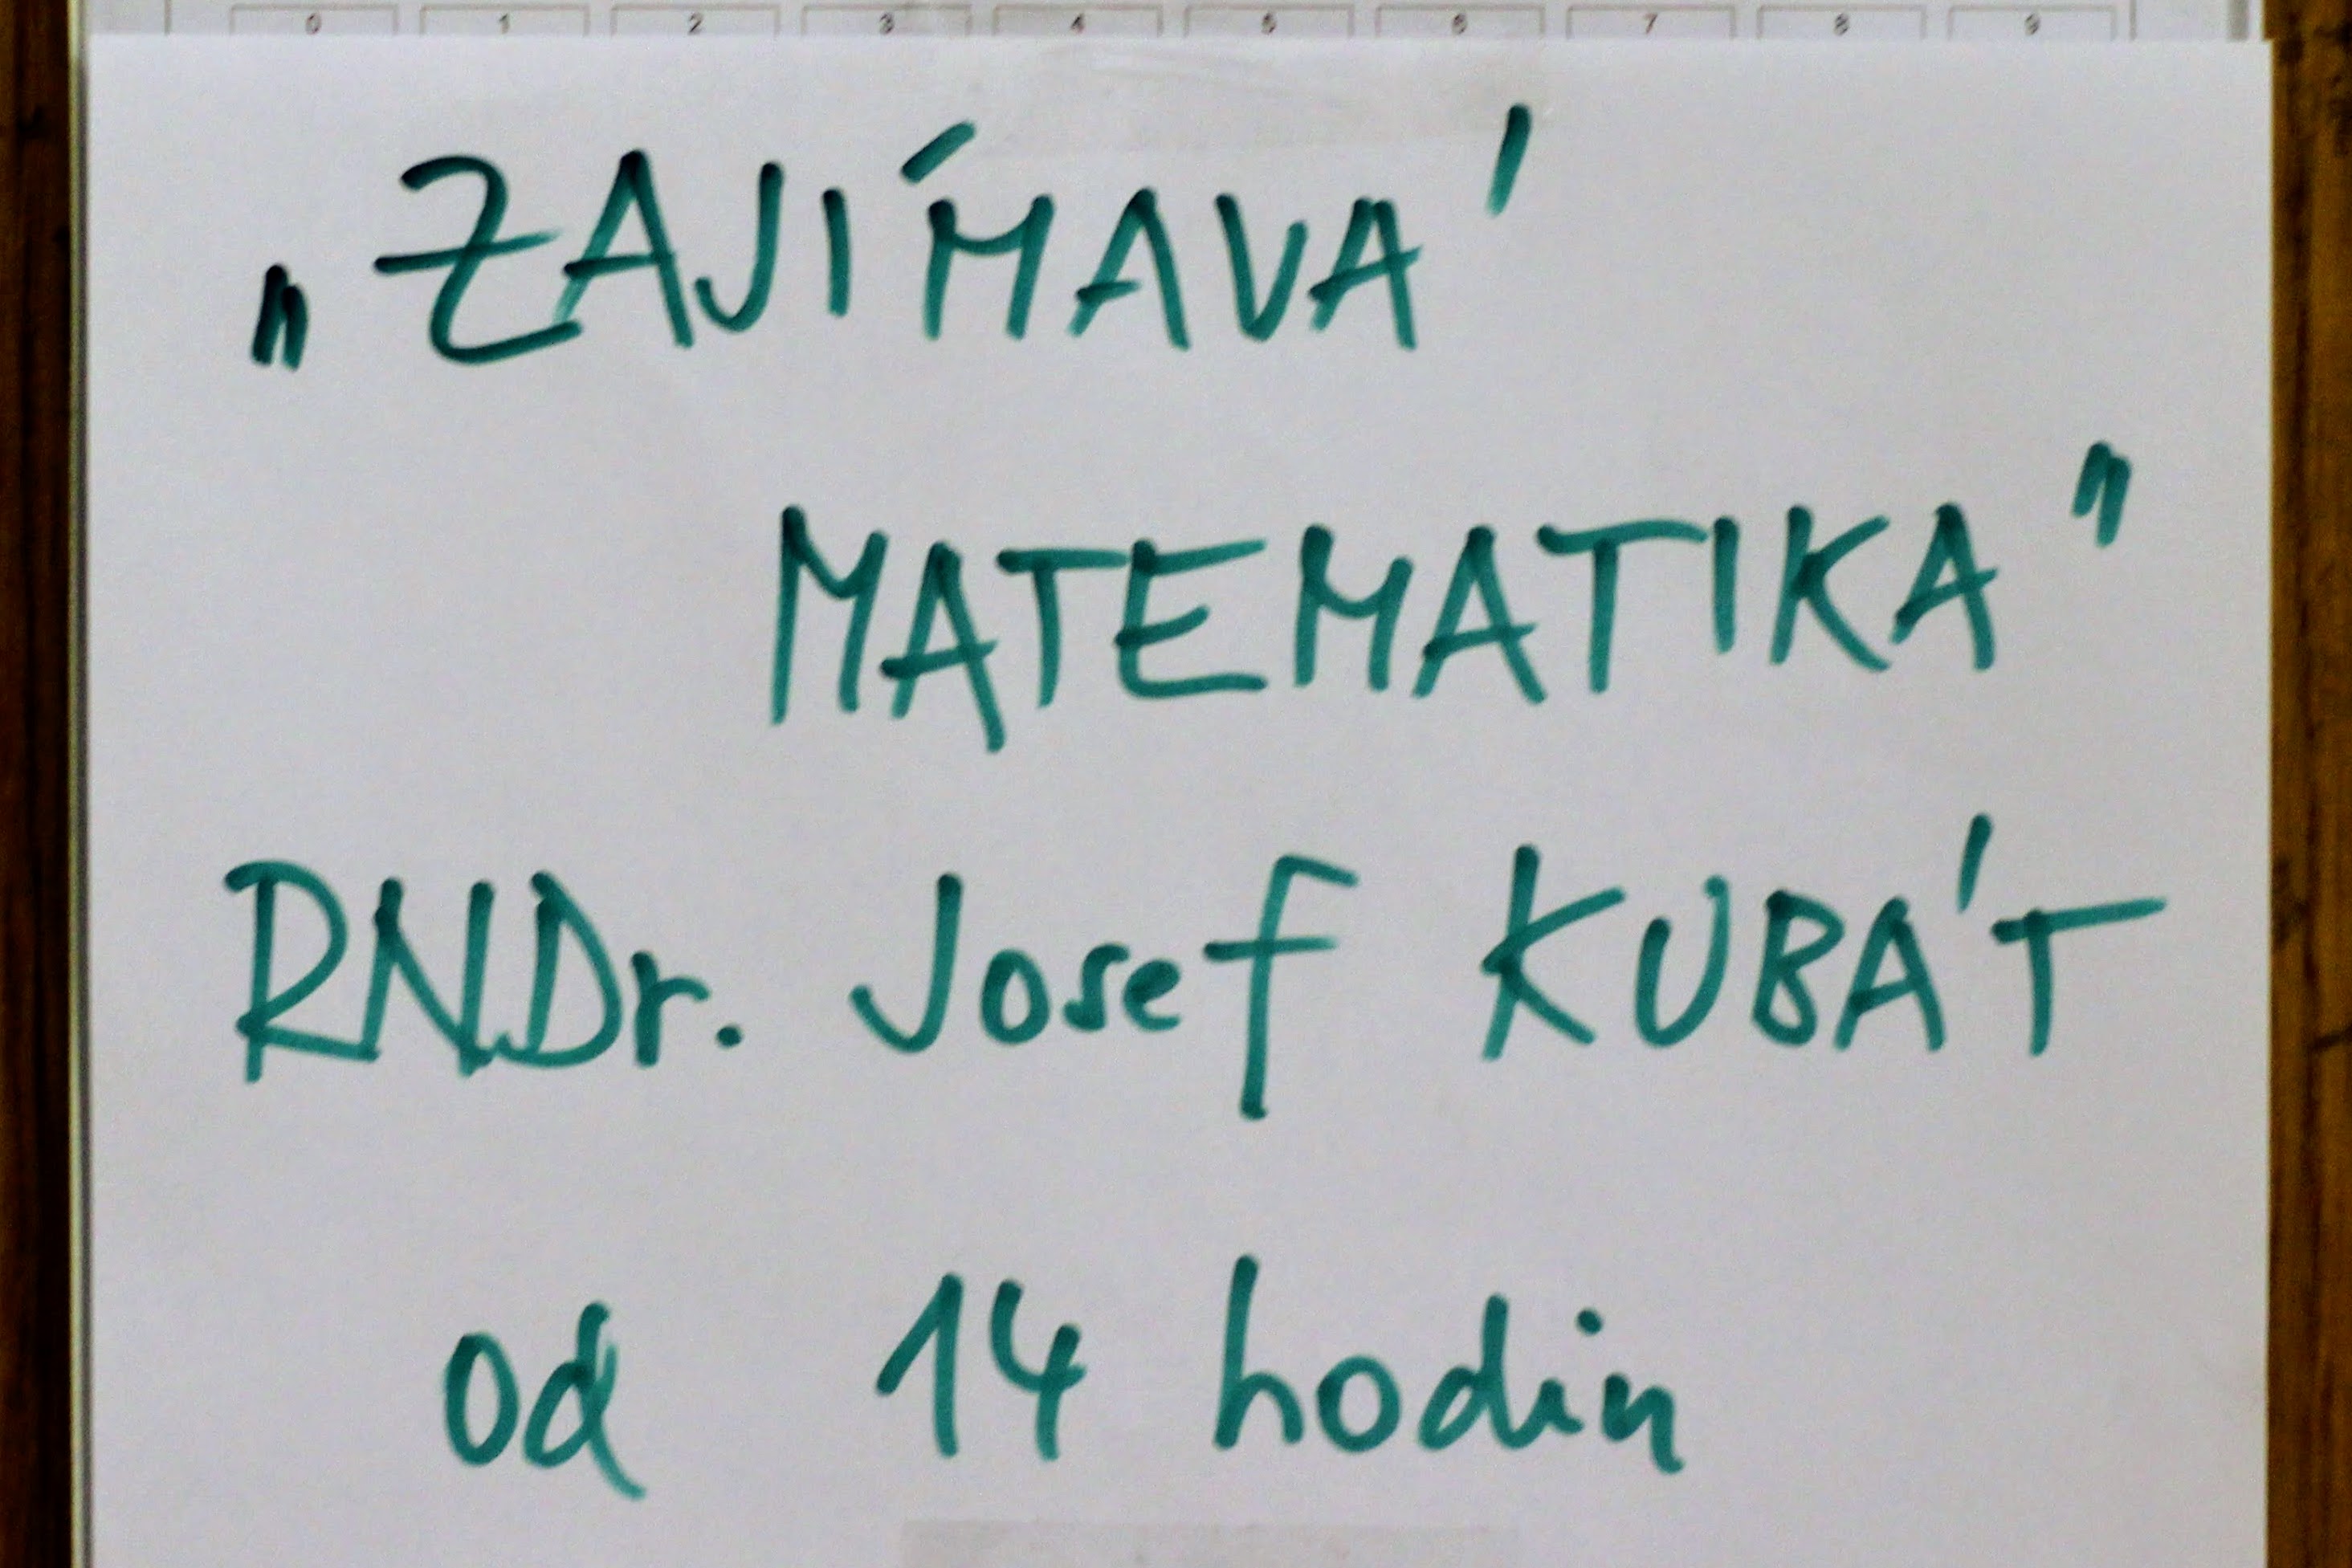 0 1 2 3 4 5 6 7 8 9
„ZAJÍMAVÁ
MATEMATIKA"
RNDr. Josef KUBÁT
od 14 hodin